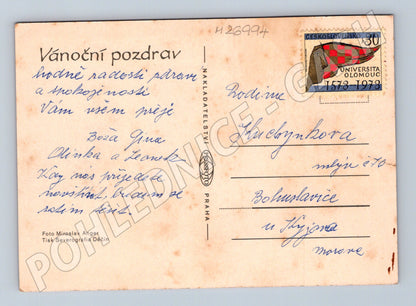 H26994
Vánoční pozdrav
hodně radosti zdraví
a spokojenosti
Vám všem přeje
Boža
Olinka a
Kdy nás přijedete
navštívit. Budem se
těšit.
Foto Miroslav
Tisk Severografia Děčín
NAKLADATELSTVÍ ORBIS PRAHA
ČESKOSLOVENSKO
30
UNIVERSITA
OLOMOUC
1573-1973
Rodina
Kuchyňkova
mlýn č 70
Bohuslavice
u Kyjova
Morava
POHLEDNICE-CASH